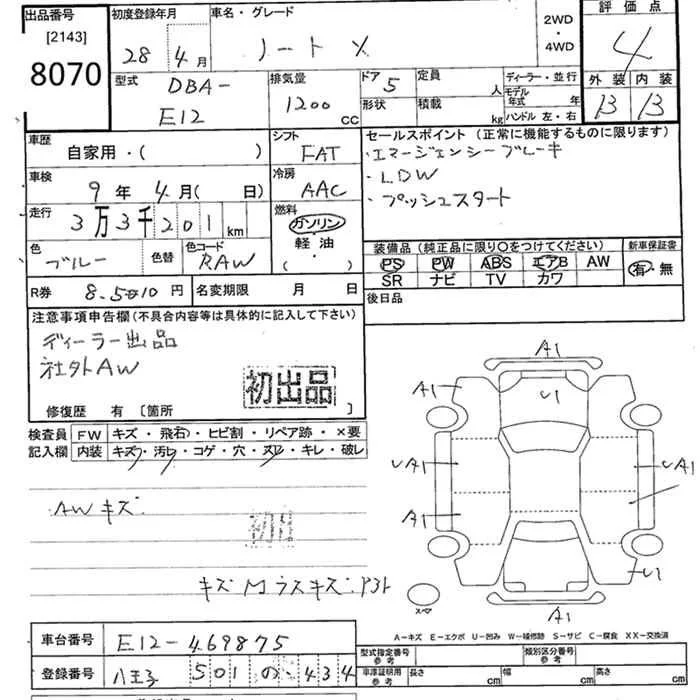 出品番号
[2143]
8070
初度登録年月
28 4月
車名・グレード
ノート X
2WD
・
4WD
評価点
4
外装 内装
B B
型式
DBA-
E12
排気量
1200
CC
ドア 5
形状
定員
人
積載
kg
ディーラー・並行
モデル年式 年
ハンドル 左・右
車歴
自家用・( )
車検
9年 4月( 日)
走行
3万3千201km
色
ブルー
色替
色コード
RAW
シフト
FAT
冷房
AAC
燃料
ガソリン
・
軽油
・
( )
セールスポイント (正常に機能するものに限ります)
・エマージェンシーブレーキ
・LDW
・プッシュスタート
装備品 (純正品に限り○をつけてください)
PS PW ABS エアB AW
SR ナビ TV カワ
新車保証書
有・無
後日品
R券 8.510円
名変期限 月 日
注意事項申告欄(不具合内容等は具体的に記入して下さい)
ディーラー出品
社外AW
初出品
修復歴 有 [箇所 ]
検査員
記入欄
FW キズ・飛石・ヒビ割・リペア跡・×要
内装 キズ・汚レ・コゲ・穴・スレ・キレ・破レ
AWキズ
A1
A1
U1
UA1
UA1
A1
U1
A1
A-キズ E-エクボ U-凹み W-補修跡 S-サビ C-腐食 XX-交換済
車台番号
E12-469875
登録番号
八王子 501 の 434
型式指定番号
参考
類別区分番号
参考
車庫証明用
参考
長さ cm
幅 cm
高さ cm